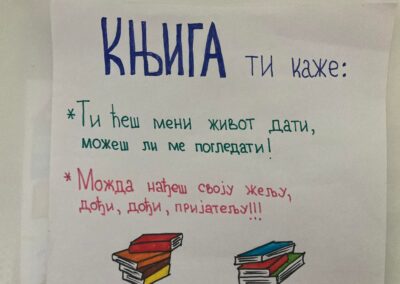 КЊИГА ти каже:
*Ти ћеш мени живот дати,
можеш ли ме погледати!
*Можда нађеш своју жељу,
дођи, дођи, пријатељу!!!